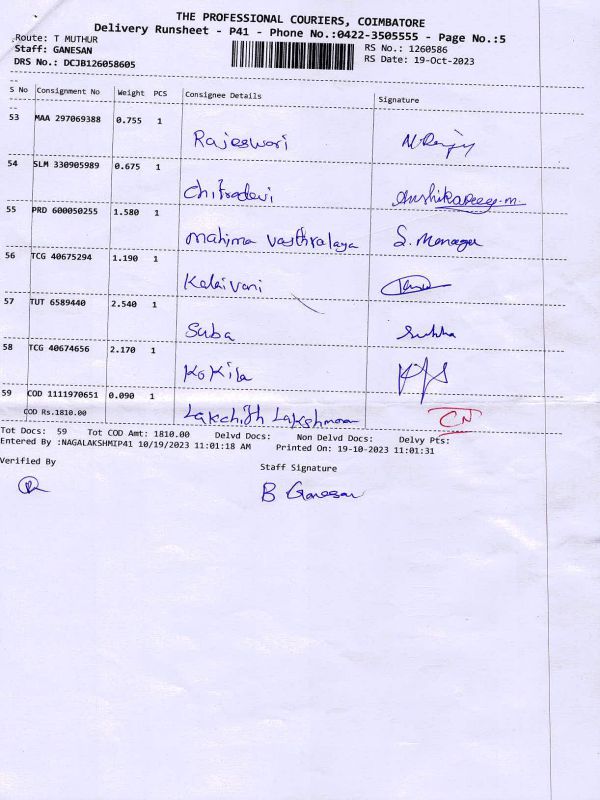 THE PROFESSIONAL COURIERS, COIMBATORE
Delivery Runsheet - P41 - Phone No.:0422-3505555 - Page No.:5
Route: T MUTHUR
RS No.: 1260586
Staff: GANESAN
RS Date: 19-Oct-2023
DRS No.: DCJB126058605
S No Consignment No Weight PCS Consignee Details Signature
53 MAA 297069388 0.755 1
Rajeswari
54 SLM 330905989 0.675 1
Chitradevi
55 PRD 600050255 1.580 1
Mahima Vasthralaya S. Manager
56 TCG 40675294 1.190 1
Kalaivani
57 TUT 6589440 2.540 1
Suba
58 TCG 40674656 2.170 1
Kokila
59 COD 1111970651 0.090 1
COD Rs.1810.00
CN
Tot Docs: 59 Tot COD Amt: 1810.00 Delvd Docs: Non Delvd Docs: Delvy Pts:
Entered By :NAGALAKSHMIP41 10/19/2023 11:01:18 AM Printed On: 19-10-2023 11:01:31
Verified By
Staff Signature
B Ganesan